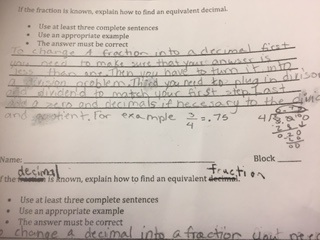 If the fraction is known, explain how to find an equivalent decimal.
• Use at least three complete sentences
• Use an appropriate example
• The answer must be correct
To change a fraction into a decimal first
you need to make sure that your answer is
less than one. Then you have to turn it into
a division problem. Third you need to plug in divisor
and dividend to match your first step. Last
add a zero and decimals if necessary to the
and quotient. For example 3/4 = .75
Name: Block
decimal fraction
f the fraction is known, explain how to find an equivalent decimal.
• Use at least three complete sentences
• Use an appropriate example
• The answer must be correct
o change a decimal into a fraction you need